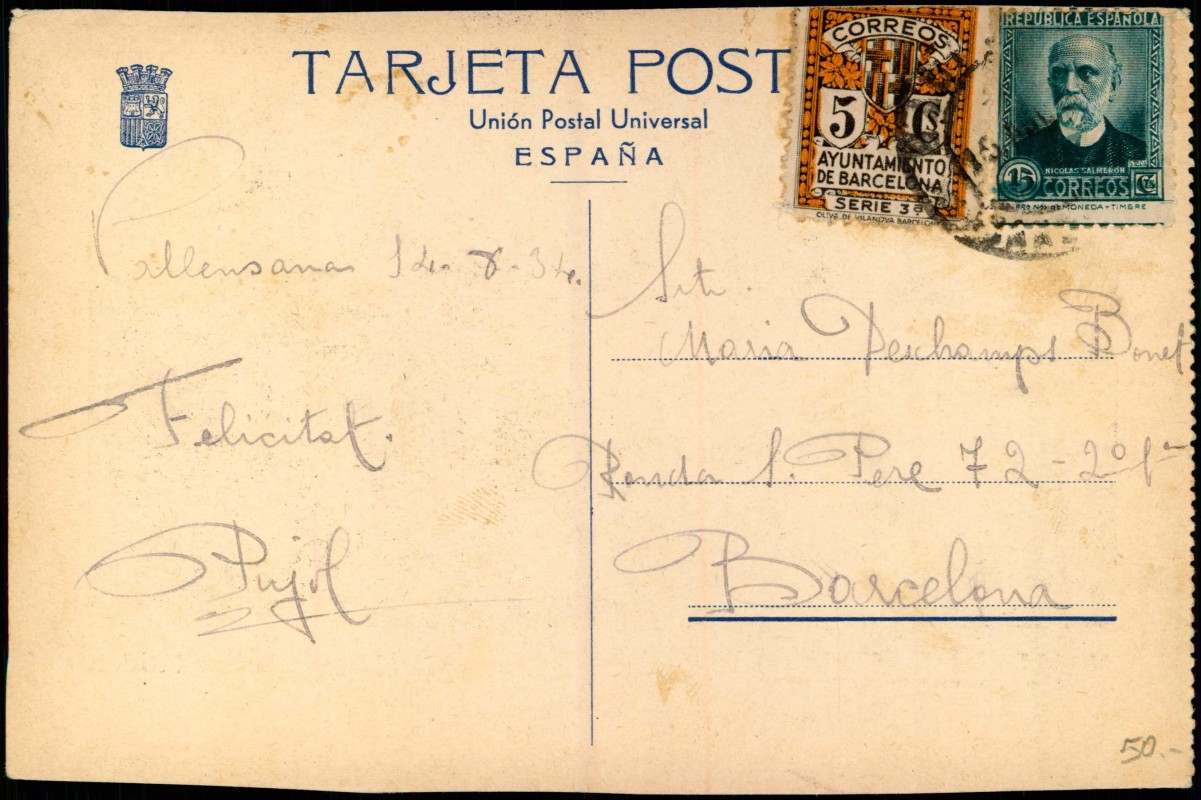 TARJETA POST
Unión Postal Universal
ESPAÑA
CORREOS
5 Cs.
AYUNTAMIENTO
DE BARCELONA
SERIE 3ª
OLIVA DE VILANOVA BARCELONA
REPUBLICA ESPAÑOLA
NICOLAS SALMERON
15 CORREOS Cts
MONEDA-TIMBRE
Vallensana 14-8-34.
Felicitat.
Pujol
Srta.
Maria Deschamps Bonet
Ronda S. Pere 72-2º 1ª
Barcelona
50.-